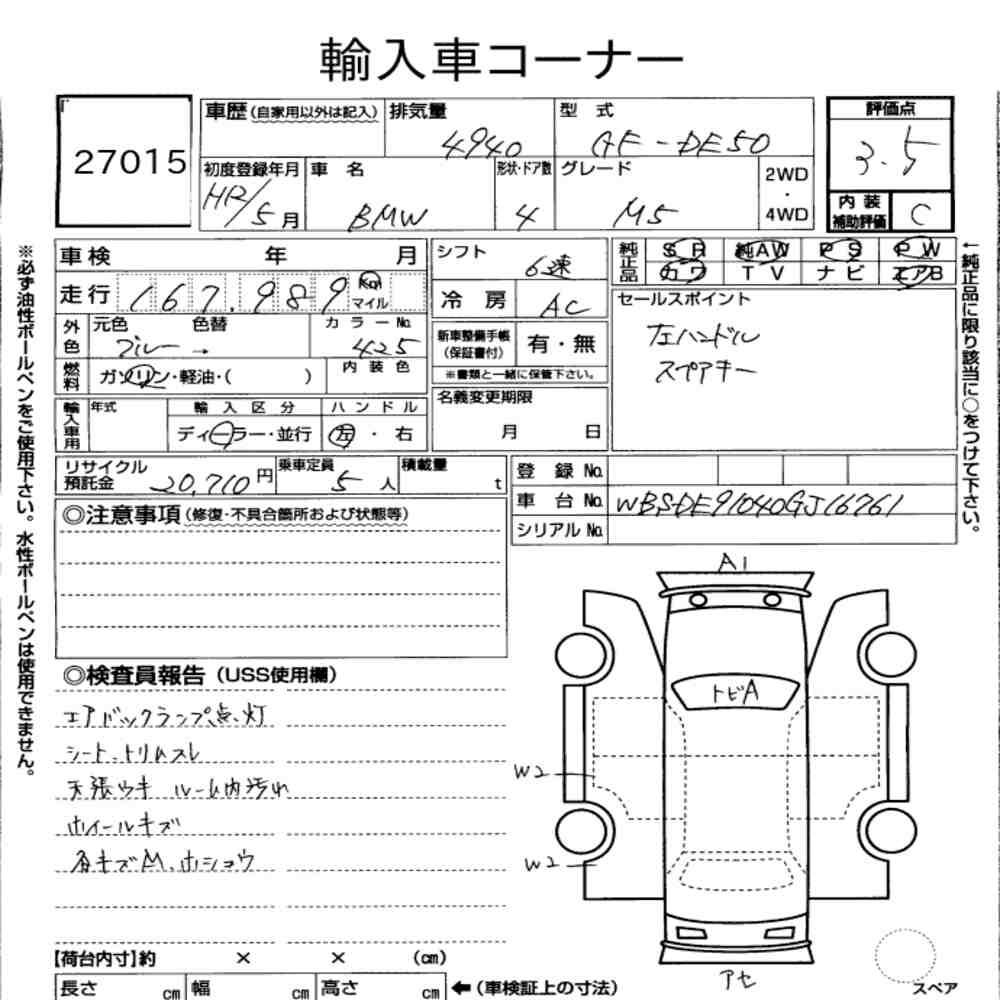 輸入車コーナー
27015
車歴(自家用以外は記入)
排気量
4940
型 式
GF-DE50
評価点
3.5
初度登録年月
5月
車 名
BMW
形状・ドア数
4
グレード
M5
2WD
・
4WD
内 装
補助評価
C
車検 年 月
走行 167.989 Km
マイル
シフト
6速
冷 房
AC
純正品
S R 純AW P S P W
カワ T V ナビ エアB
外色
元色 色替
ブルー →
カラーNo.
425
燃料
ガソリン・軽油・( )
内 装 色
新車整備手帳
(保証書付)
有・無
※書類と一緒に保管下さい。
セールスポイント
左ハンドル
スペアキー
輸入車用
年式
輸 入 区 分
ディーラー・並行
ハ ン ド ル
左 ・ 右
名義変更期限
月 日
リサイクル
預託金
20,710円
乗車定員
5人
積載量
t
登 録 No.
車 台 No.
WBSDE91040GJ16761
シリアル No.
◎注意事項(修復・不具合箇所および状態等)
◎検査員報告(USS使用欄)
エアバックランプ点灯
シート、トリムスレ
天張ウキ ルーム内汚れ
ホイールキズ
各キズM、ホショウ
A1
トビA
W2
W2
アセ
スペア
【荷台内寸】約 × × (cm)
長さ cm 幅 cm 高さ cm ←(車検証上の寸法)
※必ず油性ボールペンをご使用下さい。水性ボールペンは使用できません。
←純正品に限り該当に○をつけて下さい。